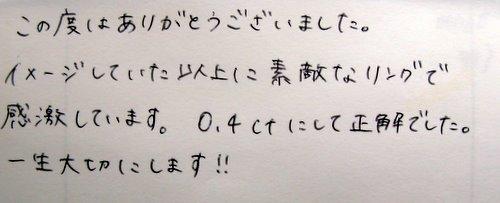 この度はありがとうございました。
イメージしていた以上に素敵なリングで
感激しています。 0.4ctにして正解でした。
一生大切にします!!